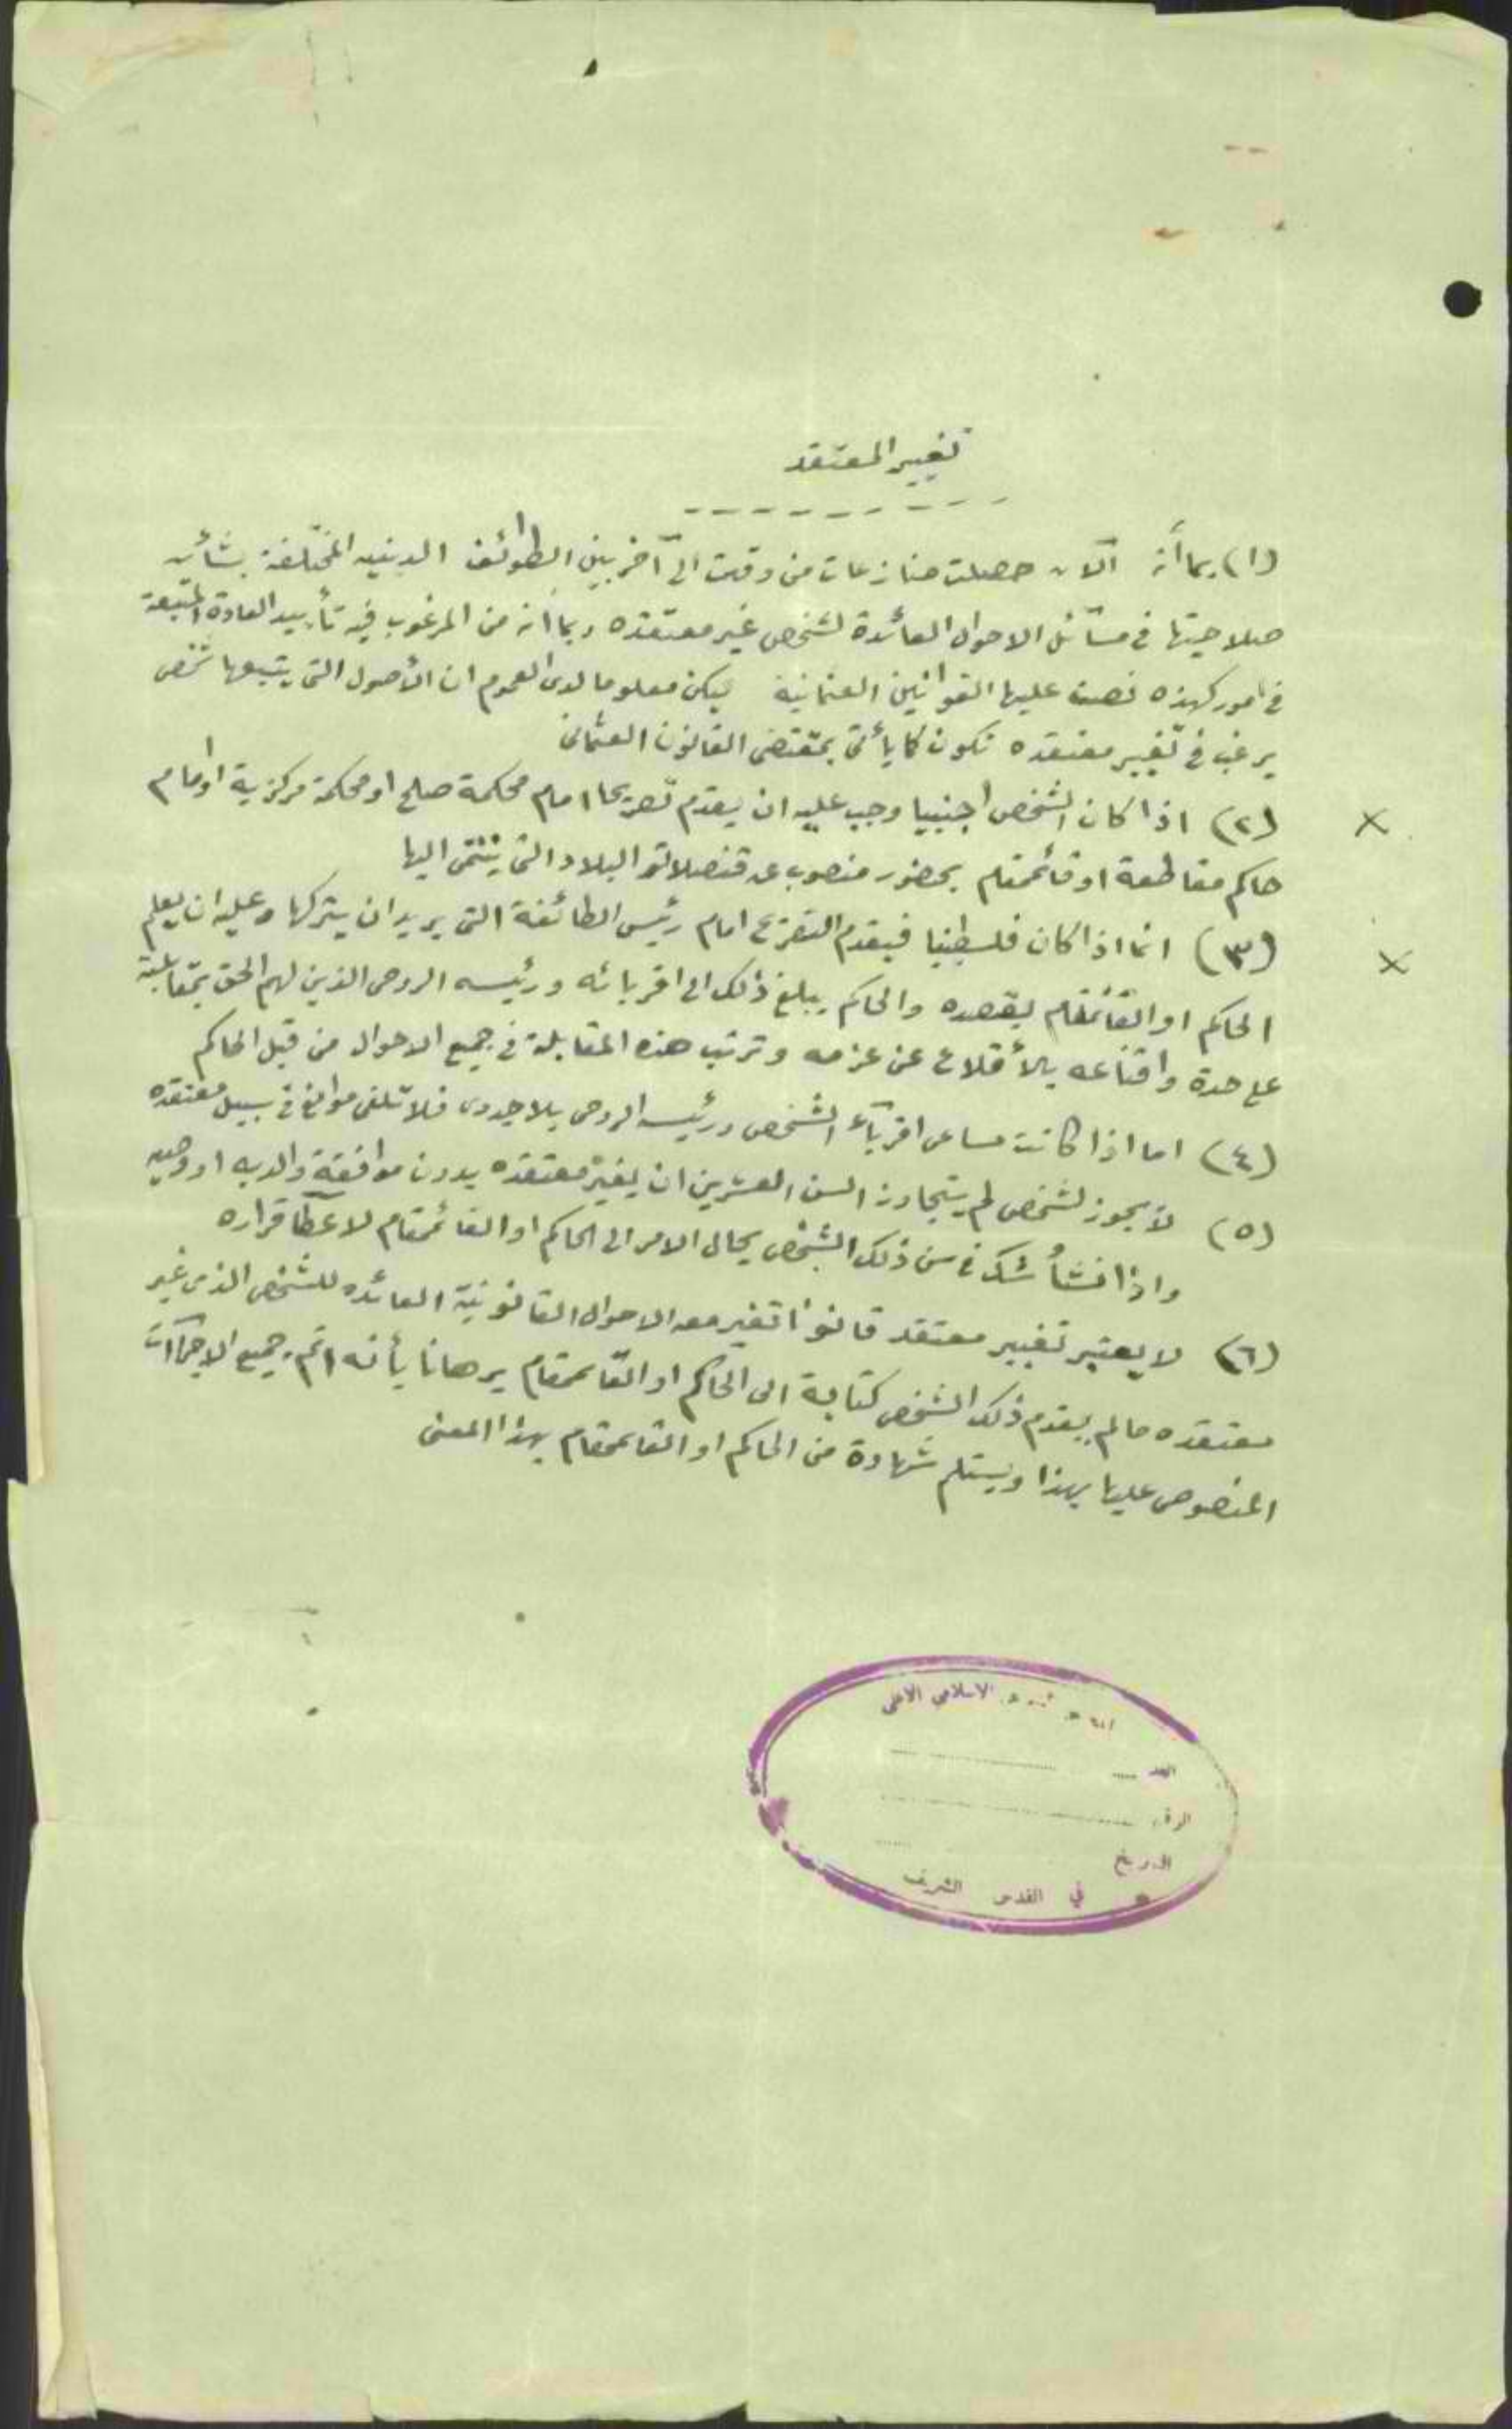 تغيير المعتقد
(١) بما أنه الآن حصلت منازعات من وقت الى آخر بين الطوائف الدينيه المختلفة بشأن
صلاحيتها في مسائل الاحوال العائدة لشخص غير معتقده وبما انه من المرغوب فيه تأييد العادة المتبعة
في امور كهذه نصت عليها القوانين العثمانية ليكن معلوما لدى العموم ان الأصول التي يتبعها شخص
يرغب في تغيير معتقده تكون كما يأتي بمقتضى القانون العثماني
× (٢) اذا كان الشخص اجنبيا وجب عليه ان يقدم تصريحا امام محكمة صلح او محكمة مركزية او امام
حاكم مقاطعة او قائممقام بحضور مندوب عن قنصلاتو البلاد التي ينتمي اليها
× (٣) انما اذا كان فلسطينيا فيقدم التصريح امام رئيس الطائفة التي يريد ان يتركها وعليه ان يعلم
الحاكم او القائمقام بقصده والحاكم يبلغ ذلك الى اقربائه ورئيسه الروحي الذين لهم الحق بمقابلته
على حدة واقناعه بالأقلاع عن عزمه وترتب هذه المقابلة في جميع الاحوال من قبل الحاكم
(٤) اما اذا كانت مساعي اقرباء الشخص ورئيسه الروحي بلا جدوى فلا تلقى موانع في سبيل معتقده
(٥) لا يجوز لشخص لم يتجاوز السن العشرين ان يغير معتقده بدون موافقة والديه او وصيه
واذا نشأ شك في سن ذلك الشخص يحال الامر الى الحاكم او القائممقام لاعطآ قراره
(٦) لا يعتبر تغيير معتقد قانونا تتغير معه الاحوال القانونية العائده للشخص الذي غير
معتقده ما لم يقدم ذلك الشخص كتابة الى الحاكم او القائممقام برهانا بأنه اتم جميع الاجراآت
المنصوص عليها بهذا ويستلم شهادة من الحاكم او القائممقام بهذا المعنى
الاسلامي الاعلى
العدد
الرقم
التاريخ
في القدس الشريف